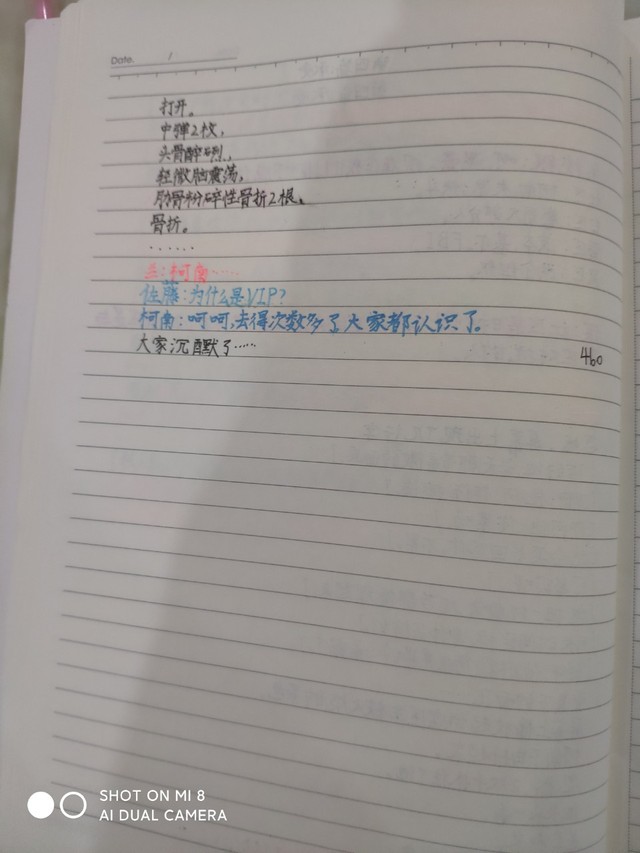 Date. /
打开。
中弹2枚,
头骨碎裂,
轻微脑震荡,
肋骨粉碎性骨折2根。
骨折。
......
兰:柯南……
佐藤:为什么是VIP?
柯南:呵呵,去得次数多了大家都认识了。
大家沉默了……
460
SHOT ON MI 8
AI DUAL CAMERA